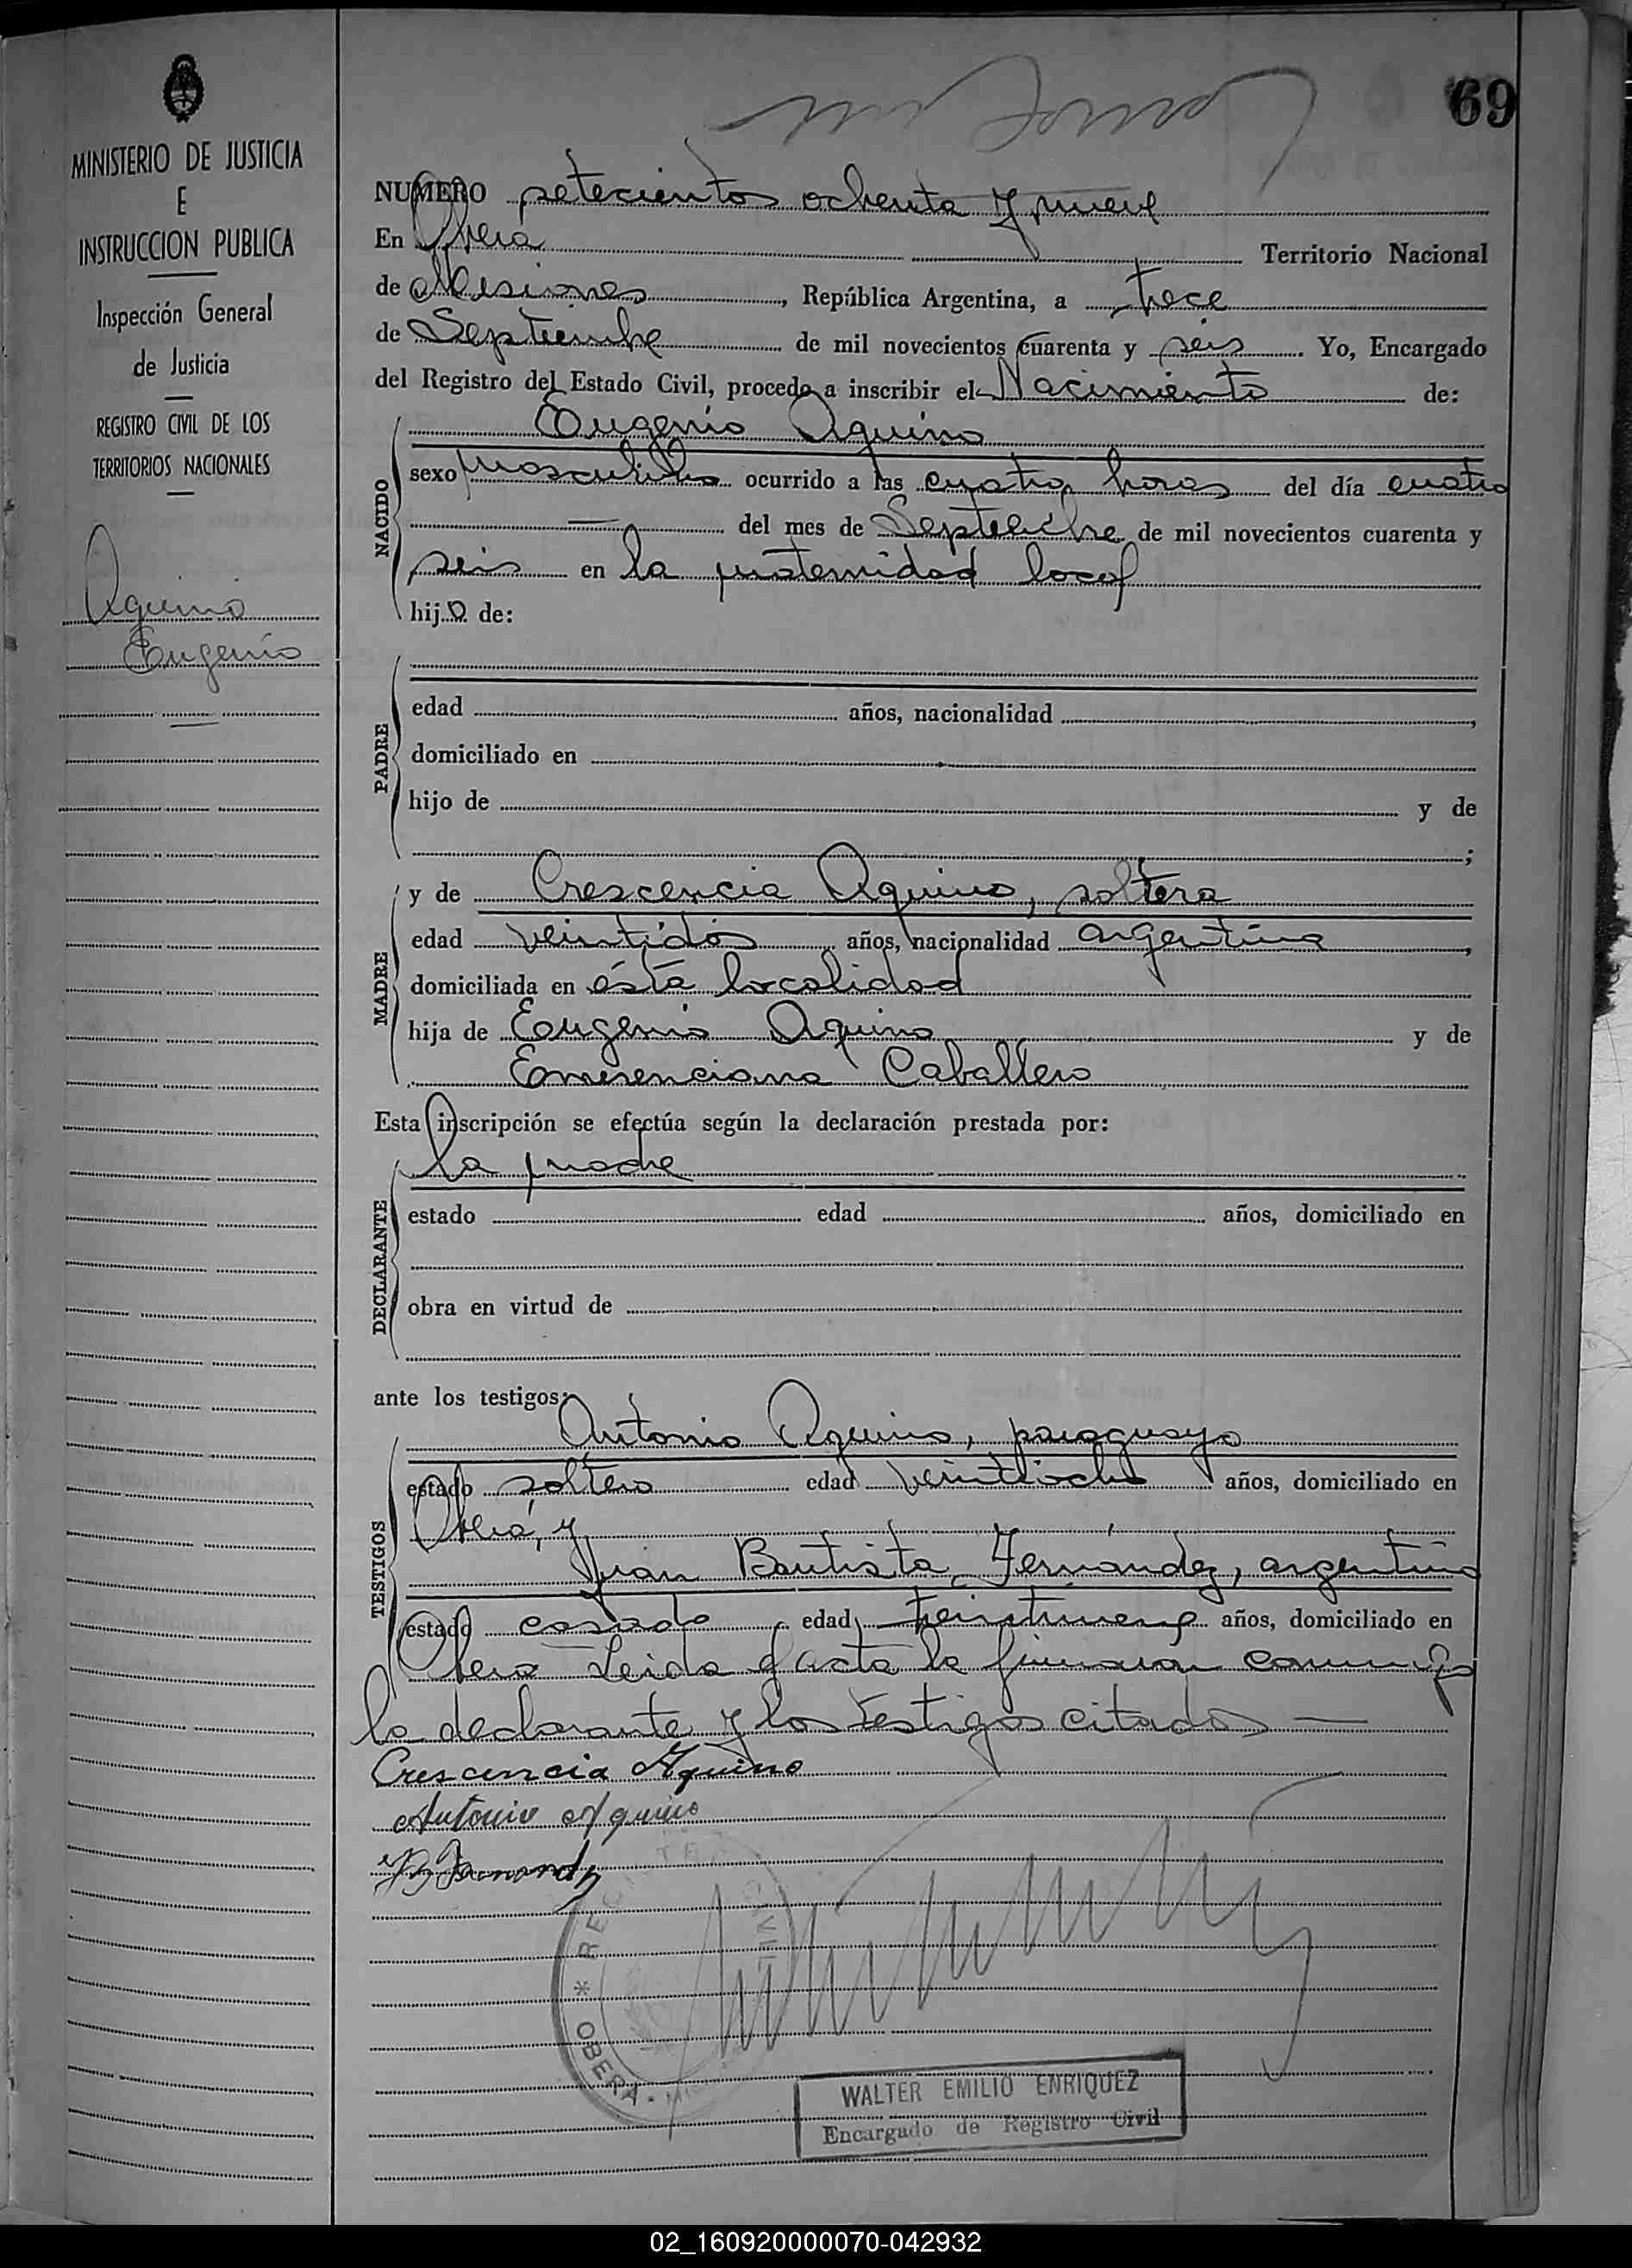 69
MINISTERIO DE JUSTICIA
E
INSTRUCCION PUBLICA
Inspección General
de Justicia
REGISTRO CIVIL DE LOS
TERRITORIOS NACIONALES
Aquino
Eugenio
NUMERO setecientos ochenta y nueve
En Oberá Territorio Nacional
de Misiones, República Argentina, a trece
de Septiembre de mil novecientos cuarenta y seis. Yo, Encargado
del Registro del Estado Civil, procedo a inscribir el Nacimiento de:
NACIDO
Eugenio Aquino
sexo masculino ocurrido a las cuatro horas del día cuatro
— del mes de Septiembre de mil novecientos cuarenta y
seis en la maternidad local
hijo de:
PADRE
edad años, nacionalidad ,
domiciliado en
hijo de y de
;
MADRE
y de Crescencia Aquino, soltera
edad veintidós años, nacionalidad argentina,
domiciliada en ésta localidad
hija de Eugenio Aquino y de
Emerenciana Caballero
Esta inscripción se efectúa según la declaración prestada por:
la madre
DECLARANTE
estado edad años, domiciliado en
obra en virtud de
ante los testigos:
TESTIGOS
Antonio Aquino, paraguayo
estado soltero edad veintiocho años, domiciliado en
Oberá, y
Juan Bautista Fernández, argentino
estado casado edad treintinueve años, domiciliado en
Oberá Leida el acta la firmaron conmigo
la declarante y los testigos citados —
Crescencia Aquino
Antonio Aquino
REGISTRO CIVIL * OBERA
WALTER EMILIO ENRIQUEZ
Encargado de Registro Civil
02_160920000070-042932